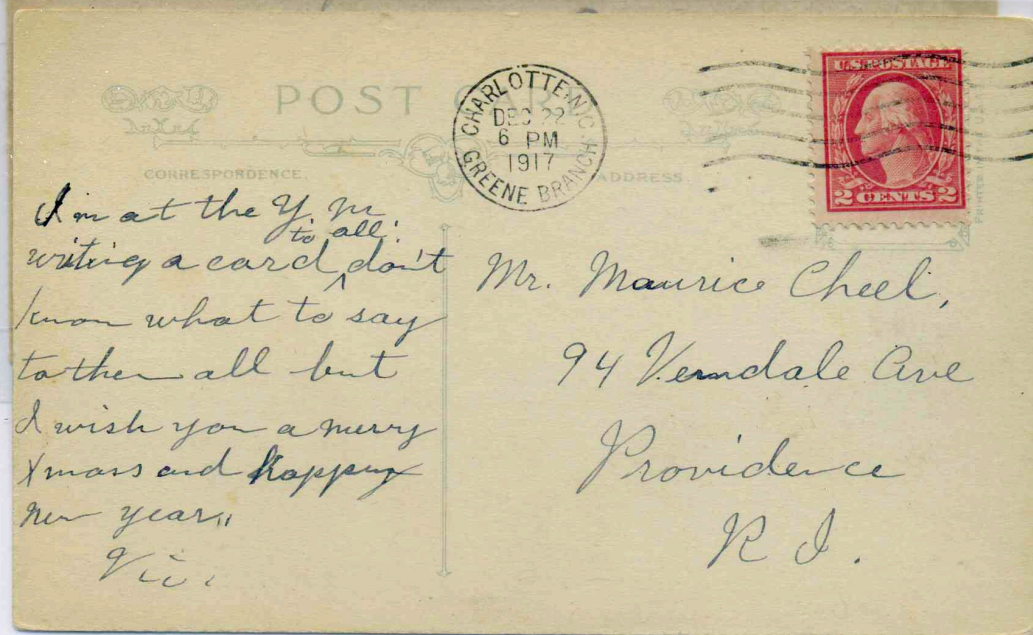 POST CARD
CHARLOTTE N.C.
DEC 22
6 PM
1917
GREENE BRANCH
U.S. POSTAGE
2 CENTS 2
CORRESPONDENCE.
ADDRESS
I'm at the Y. M.
writing a card to all. don't
know what to say
to them all but
I wish you a merry
Xmass and happy
new year,,
Vic.
Mr. Maurice Cheel,
94 Verndale Ave
Providence
R I.